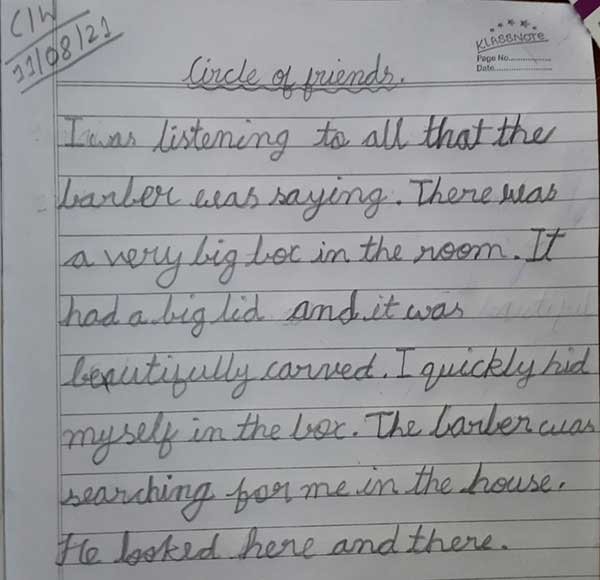 C/W
11/08/21
KLASSNOTE
Page No.
Date
Circle of friends.
I was listening to all that the
barber was saying. There was
a very big box in the room. It
had a big lid and it was
beautifully carved. I quickly hid
myself in the box. The barber was
searching for me in the house.
He looked here and there.